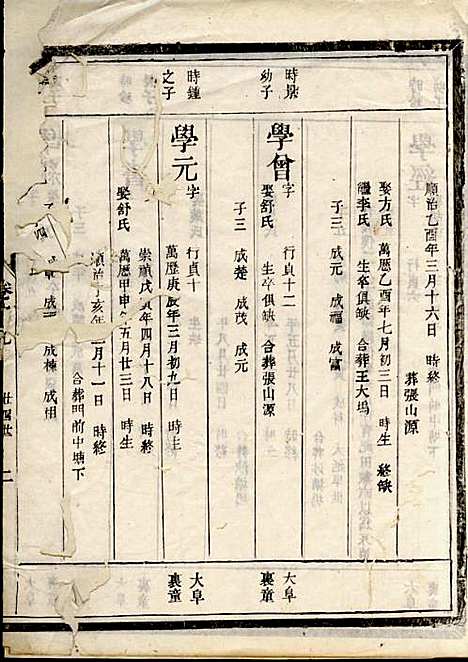 順治乙酉年三月十六日 時終
葬張山源
娶方氏 萬曆乙酉年七月初三日 時生 終缺
繼李氏 生卒俱缺 合葬王大塢
子三 成元 成福 成富
時景
幼子
學曾 字 行貞十二
大阜
裏童
娶舒氏 生卒俱缺 合葬張山源
子三 成楚 成茂 成元
時鍾
之子
學元 字 行貞十
大阜
裏童
萬曆庚辰年三月初九日 時生
崇禎戊寅年四月十八日 時終
娶舒氏 萬曆甲申年五月廿三日 時生
順治丁亥年 月十一日 時終
合葬門前中塘下
子四 成章 成 成棟 成組
卷十九 廿四世 二